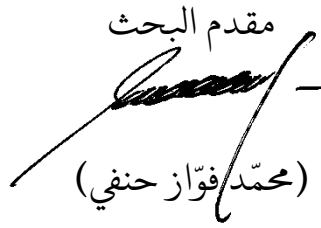 مقدم البحث
(محمّد فوّاز حنفي)